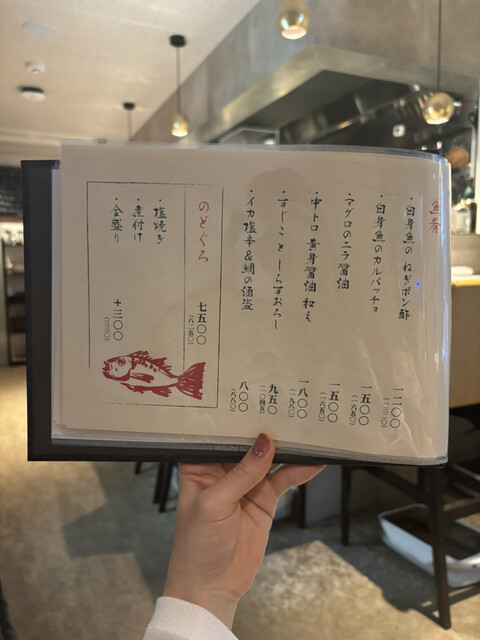 魚肴
・白身魚の ねぎポン酢
一二〇〇
(一三二〇)
・白身魚のカルパッチョ
一五〇〇
(一六五〇)
・マグロのニラ醤油
一五〇〇
(一六五〇)
・中トロ 黄身醤油 和え
一八〇〇
(一九八〇)
・すじことしらすおろし
九五〇
(一〇四五)
・イカ塩辛&鯛の酒盗
八〇〇
(八八〇)
のどぐろ
七五〇〇
(八二五〇)
・塩焼き
・煮付け
・姿盛り
+三〇〇
(三三〇)